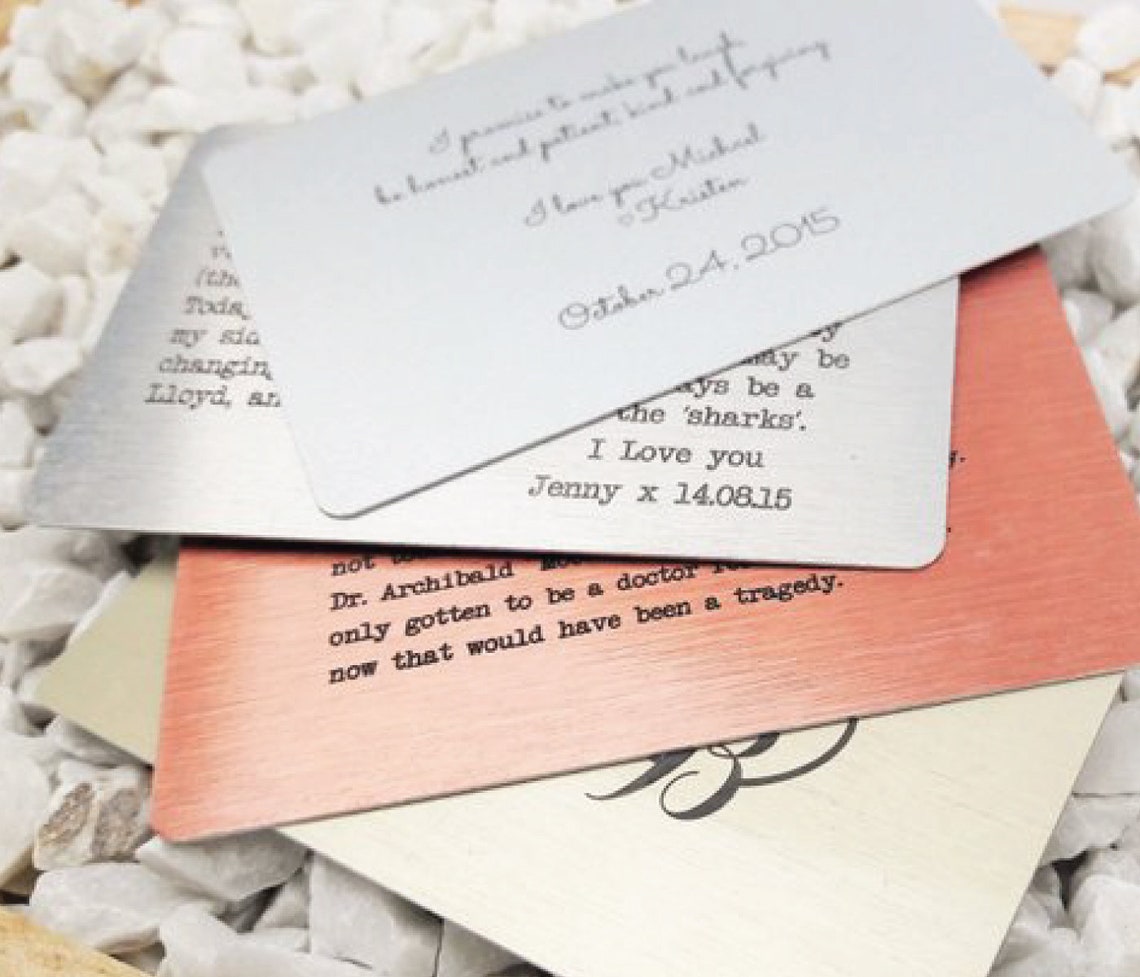 I promise to make you laugh
be honest and patient, kind and forgiving
I love you Michael
♡Kristen
October 24, 2015
(the
Toda
my sid
changin
Lloyd, an
may be
be a
the 'sharks'.
I Love you
Jenny x 14.08.15
not to
Dr. Archibald
only gotten to be a doctor
now that would have been a tragedy.
B